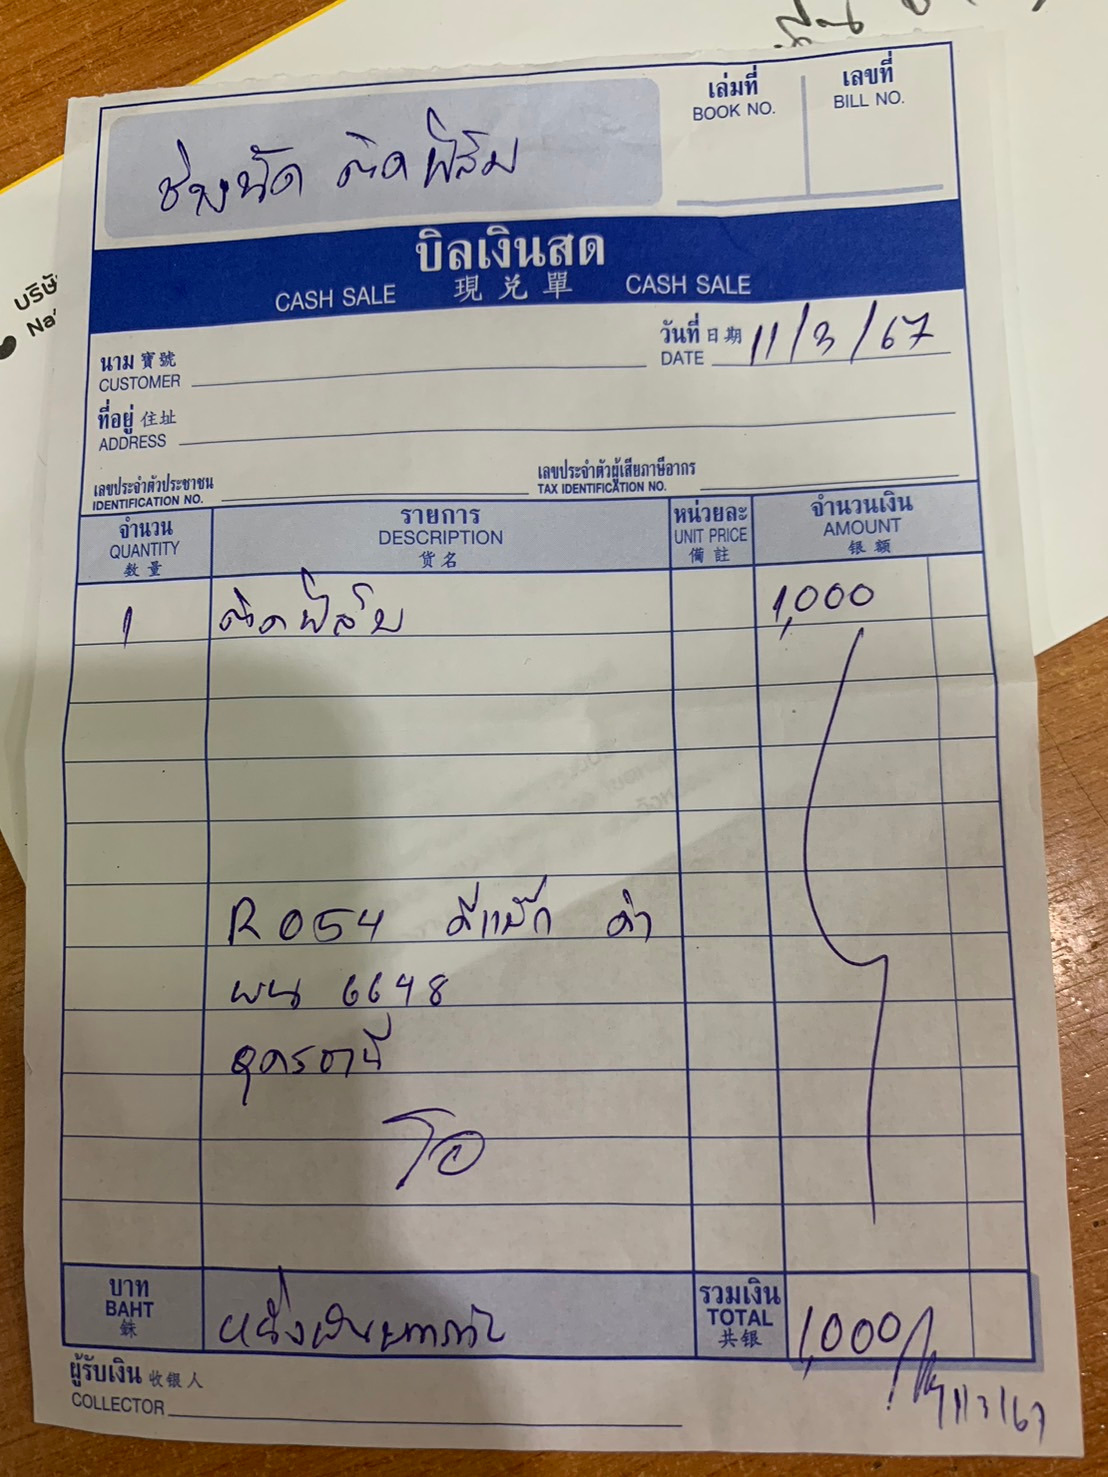 เล่มที่ เลขที่
BOOK NO. BILL NO.
ช่างนัด ติดฟิล์ม
บิลเงินสด
CASH SALE 現兌單 CASH SALE
บริษั
Na
วันที่ 日期 11/3/67
DATE
นาม 寶號
CUSTOMER
ที่อยู่ 住址
ADDRESS
เลขประจำตัวประชาชน เลขประจำตัวผู้เสียภาษีอากร
IDENTIFICATION NO. TAX IDENTIFICATION NO.
จำนวน รายการ หน่วยละ จำนวนเงิน
QUANTITY DESCRIPTION UNIT PRICE AMOUNT
数量 货名 備註 银额
1 ติดฟิล์ม 1,000
R054 ดีแม็ก ดำ
ผน 6648
อุดรธานี
โอ
บาท รวมเงิน
BAHT หนึ่งพันบาทถ้วน TOTAL 1,000
銖 共银
ผู้รับเงิน 收银人
COLLECTOR
11/3/67